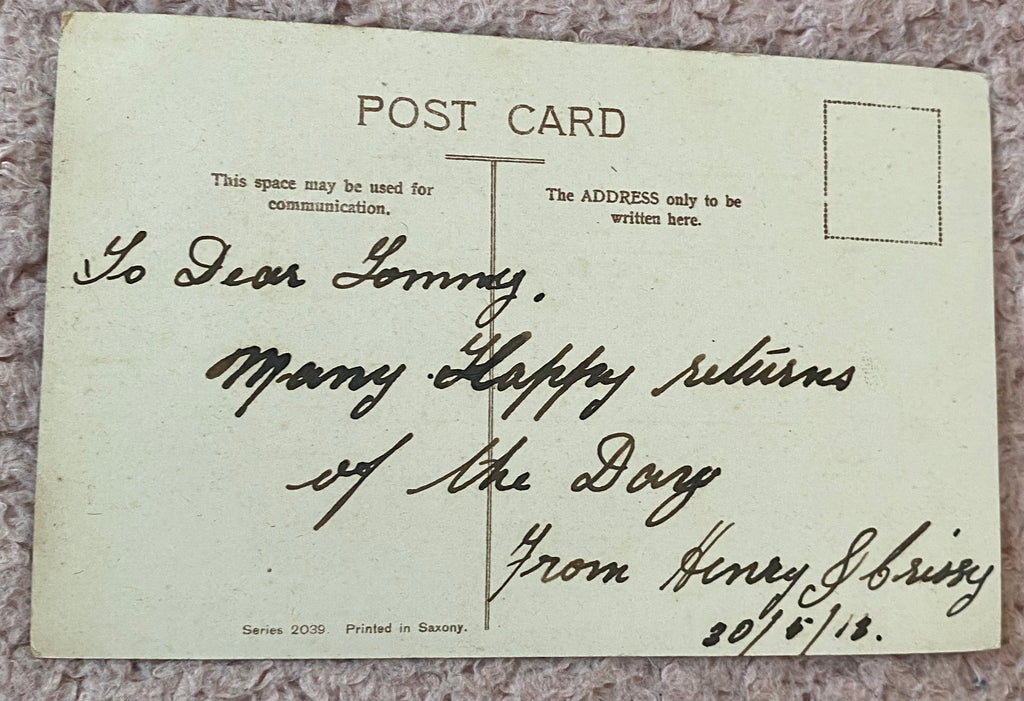 POST CARD
This space may be used for
communication.
The ADDRESS only to be
written here.
To Dear Tommy.
Many Happy returns
of the Day
From Henry & Crissy
30/5/13.
Series 2039. Printed in Saxony.